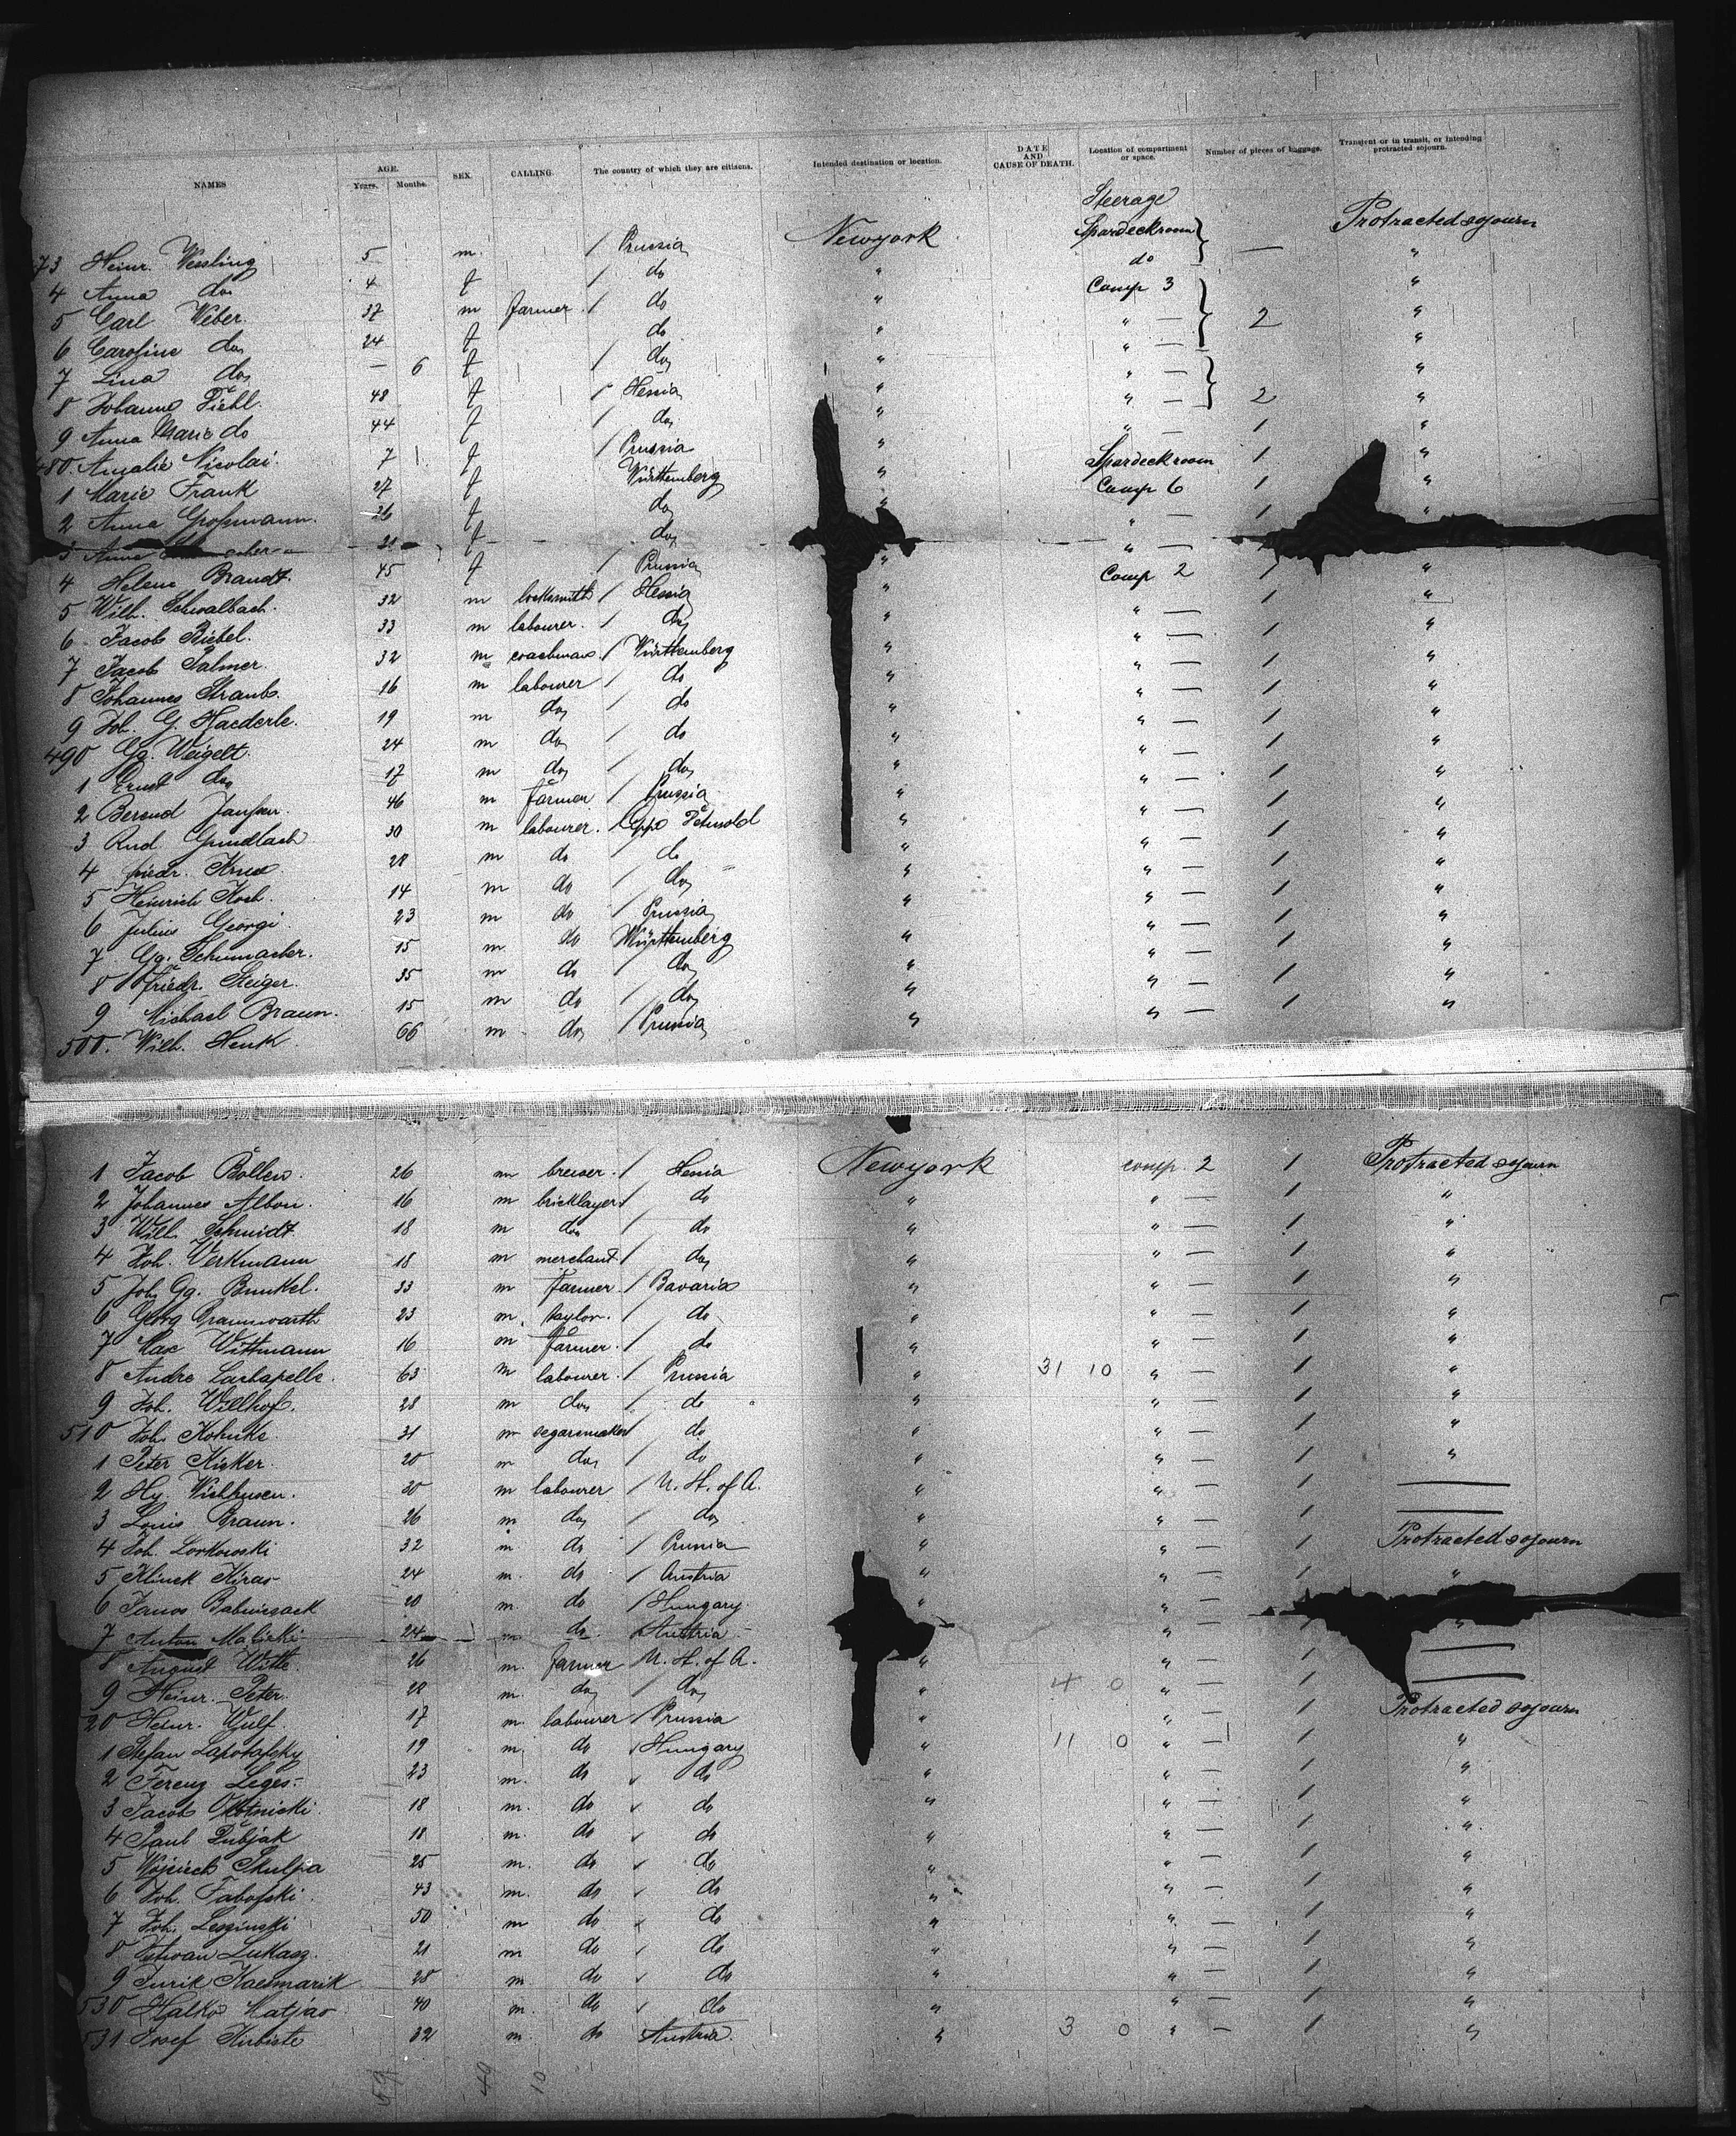 NAMES AGE. Years. Months. SEX. CALLING. The country of which they are citizens. Intended destination or location. DATE AND CAUSE OF DEATH. Location of compartment or space. Number of pieces of baggage. Transient or in transit, or intending protracted sojourn.
Steerage
73 Heinr. Wessling 5 m. / Prussia Newyork Spardeckroom — Protracted sojourn
4 Anna do 4 f / do " do "
5 Carl Weber. 37 m farmer / do " Comp 3 2 "
6 Caroline do 24 f do " " — "
7 Lina do — 6 f / do " " — "
8 Johanne Diehl. 48 f / Hessia " " — 2 "
9 Anna Marie do 44 f / do " " — "
480. Amalie Nicolai. 7 f / Prussia " " — 1 "
1 Marie Frank 27 f Württemberg " Spardeckroom 1 "
2 Anna Großmann. 26 f do " Comp 6 1 "
3 Anna 21 f do " — 1 "
4 Helene Brandt. 45 f / Prussia " " —
5 Wilh. Schwalbach. 32 m locksmith / Hessia " Comp 2 1 "
6 Jacob Riebel. 33 m labourer. / do " " — 1 "
7 Jacob Palmer. 32 m coachman / Württemberg " " — 1 "
8 Johannes Straub. 16 m labourer / do " " — 1 "
9 Joh. G. Haederle. 19 m do / do " " — 1 "
490 Gg. Weigelt. 24 m do / do " " — 1 "
1 Ernst do 17 m do / do " " — 1 "
2 Berend Janssen. 46 m farmer / Prussia " " — 1 "
3 Rud. Gundlach 30 m labourer. / Lippe Detmold " " — 1 "
4 Friedr. Kruse. 28 m do / do " " — 1 "
5 Heinrich Koch. 14 m do / do " " — 1 "
6 Julius Georgi. 23 m do / Prussia " " — 1 "
7 Gg. Schumacher. 15 m do Württemberg " " — 1 "
8 Friedr. Steiger. 35 m do / do " " — 1 "
9 Michael Braun. 15 m do / do " " — 1 "
500. Wilh. Henk. 66 m do / Prussia " " — 1 "
1 Jacob Bollen. 26 m brewer. / Hessia Newyork comp. 2 1 Protracted sojourn
2 Johannes Albon. 16 m bricklayer / do " " — 1 "
3 Wilh. Schmidt 18 m do / do " " — 1 "
4 Joh. Werkmann 18 m merchant / do " " — 1 "
5 Joh. Gg. Bunkel. 33 m farmer / Bavaria " " — 1 "
6 Georg Braunwarth 23 m. taylor. / do " " — 1 "
7 Max Wittmann 16 m farmer. / do " " — 1 "
8 Andre Lachapelle. 63 m labourer. / Prussia " 31 10 " — 1 "
9 Joh. Willhof. 28 m do / do " " — 1 "
510 Joh. Kohnke. 31 m segarmaker / do " " — 1 "
1 Peter Kicker. 20 m do / do " " — 1 "
2 Hy. Vishhusen. 30 m labourer / U. St. of A. " " — 1 —
3 Louis Braun. 26 m do / do " " — 1 —
4 Joh. Lorkowski 32 m. do / Prussia " " — 1 Protracted sojourn
5 Klinek Kiras 24 m. do / Austria " " — 1 "
6 Janos 20 m. do / Hungary " " —
7 Anton Malicki 24 m. do. Austria " " — 1 "
8 August Witte. 26 m. farmer U. St. of A. " " — 1 —
9 Heinr. Peter. 28 m. do / do " 4 0 " — 1 —
20 Heinr. Wulf. 17 m. labourer / Prussia " " — 1 Protracted sojourn
1 Stefan 19 m. do / Hungary " 11 0 " — 1 "
2 Ferenz Leges 23 m. do do " " — 1 "
3 Jacob 18 m. do do " " — 1 "
4 Paul Dubjak 18 m. do do " " — 1 "
5 Wojcieck Skulpa 25 m. do do " " — 1 "
6 Joh. Fabofski. 43 m. do do " " — 1 "
7 Joh. Leszinski 50 m do do " " — 1 "
8 Istwan Lukasz. 21 m do do " " — 1 "
9 Jurik Kacsmarik 28 m. do do " " — 1 "
530 Halko Matjas 40 m. do do " " — 1 "
531 Josef Kubiste 32 m. do Austria. " 3 0 " — 1 "
59 49 10